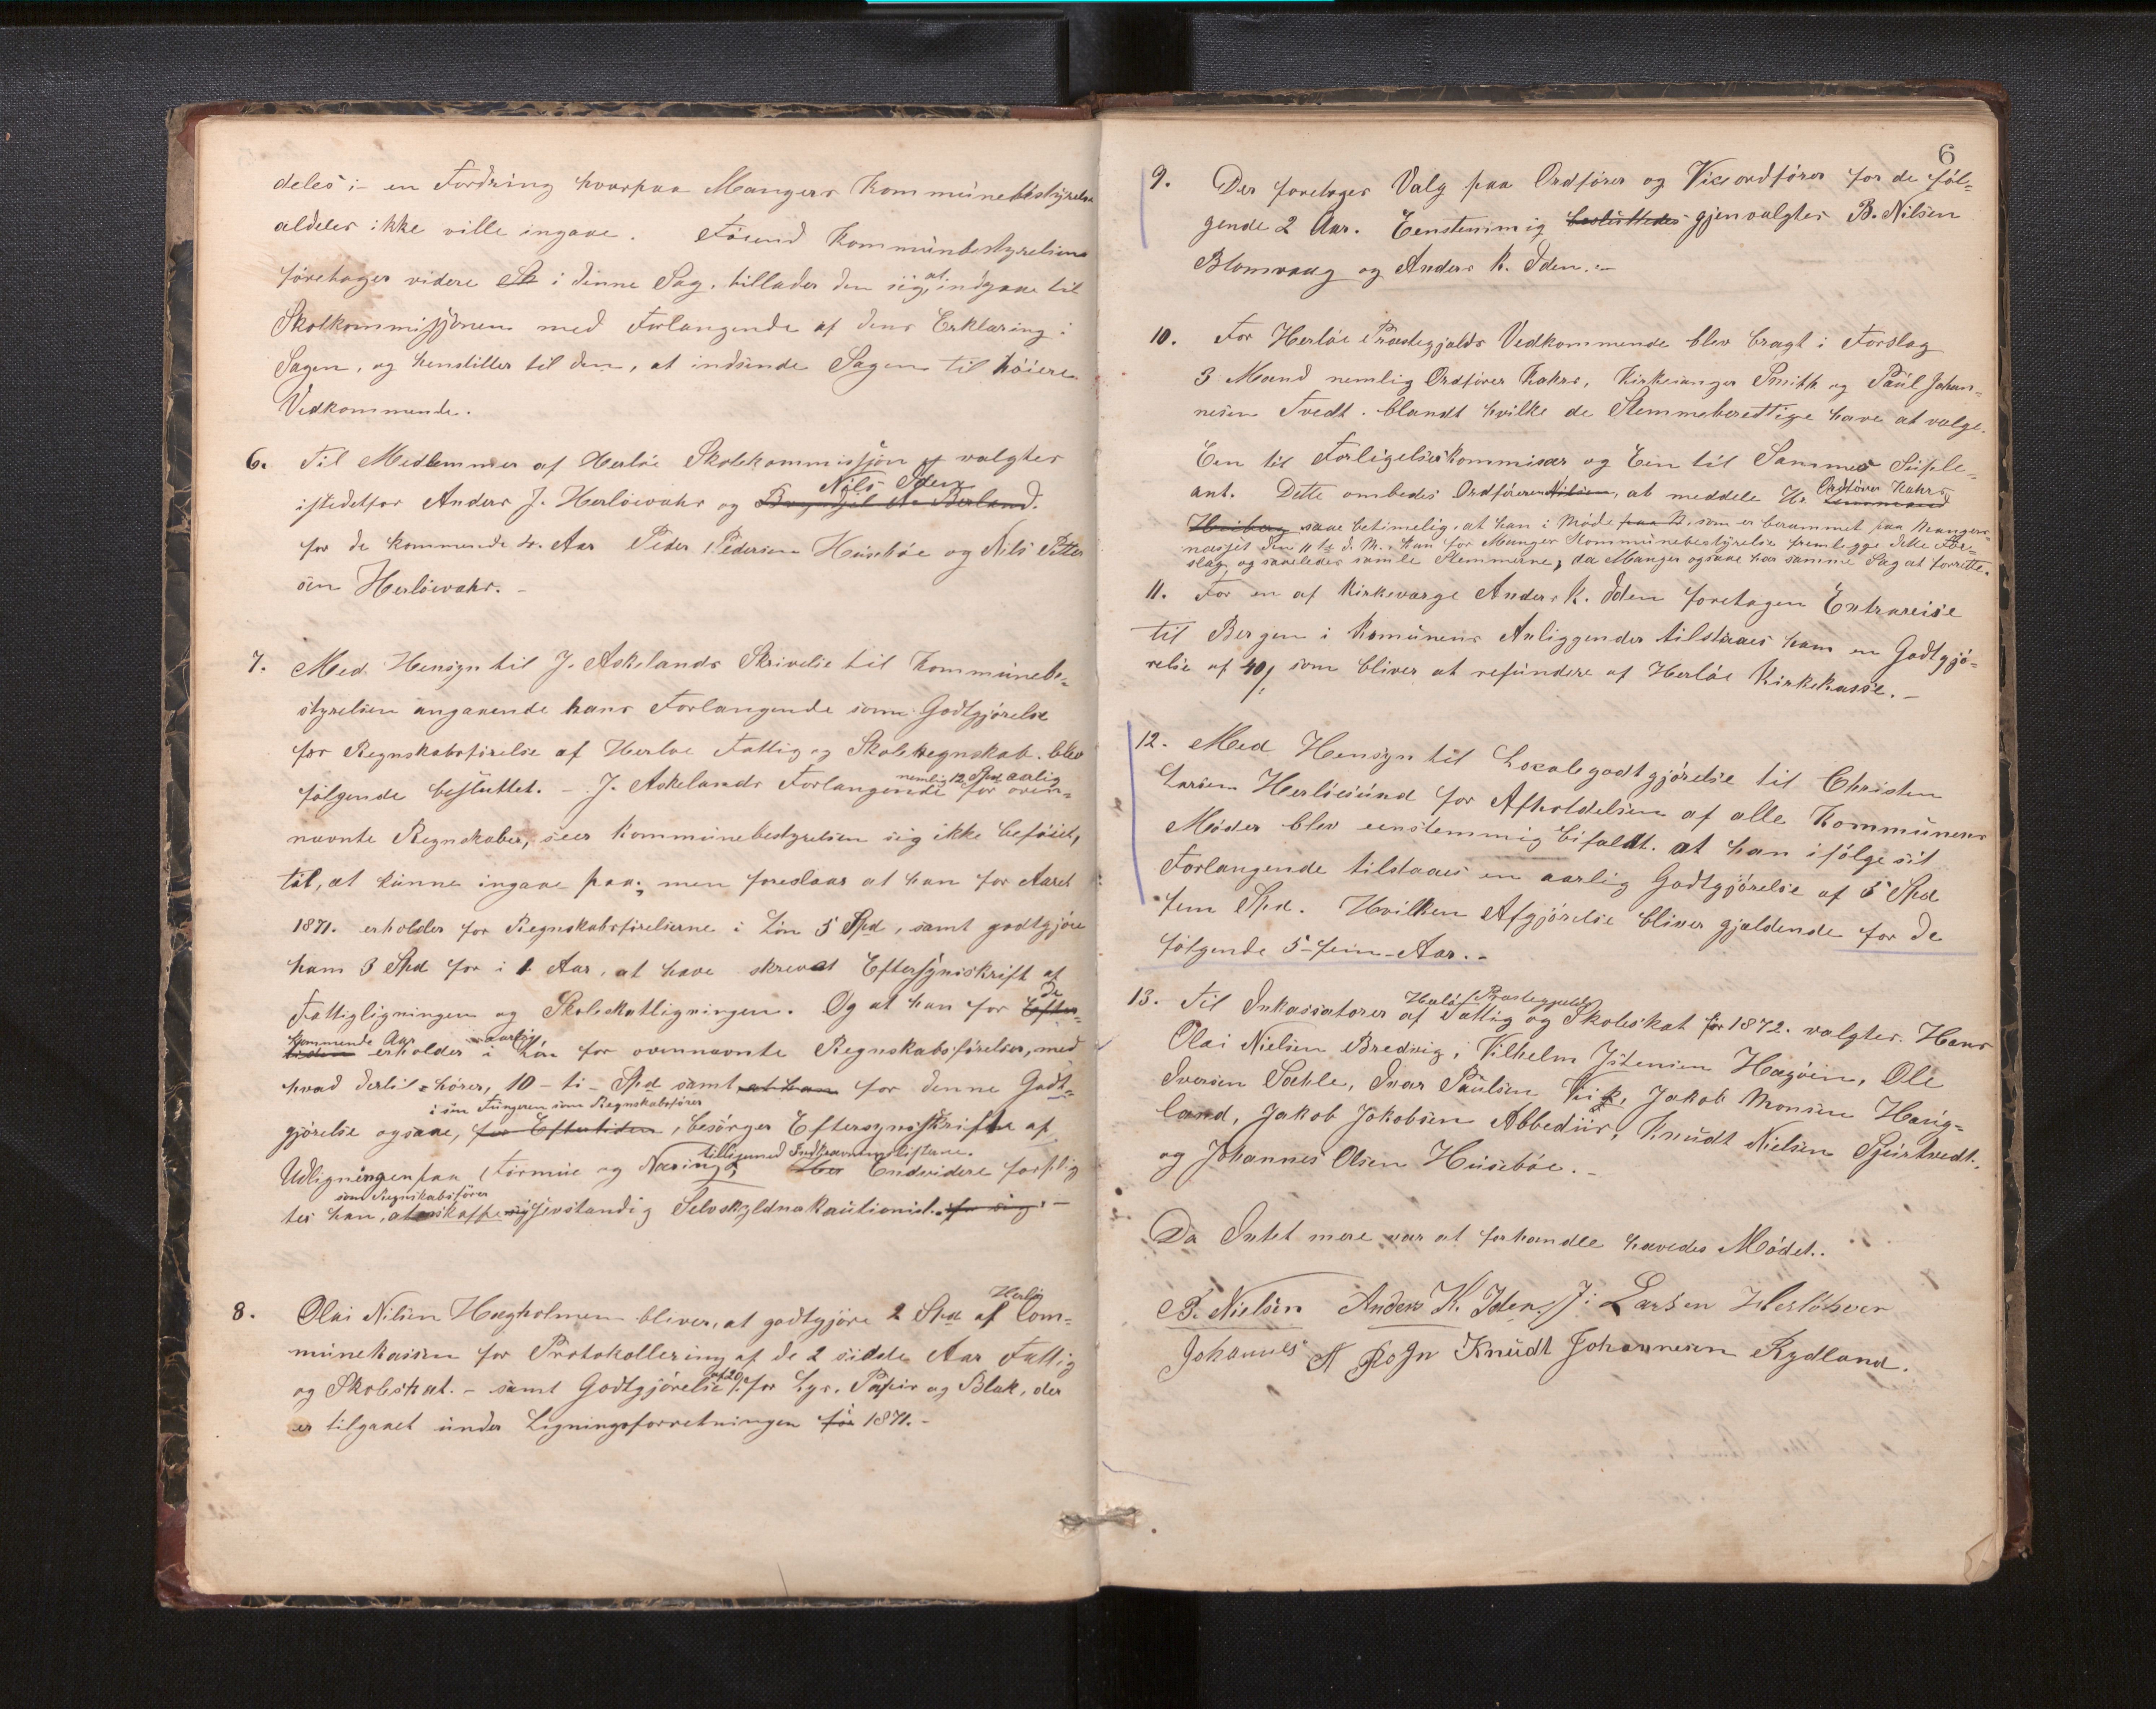 deles :- en Fordring hvorpaa Mangers Kommunebestyrelse
aldeles ikke ville ingaae. Førend Kommunbestyrelsen
foretager videre i denne Sag, tillader den sig, at indgaae til
Skolkommissjonen med Forlangende af dens Erklæring i
Sagen, og henstiller til den, at indsende Sagen til høiere
Vedkommende.
6. Til Medlemmer af Herløe Skolekommissjon valgtes
istedetfor Anders J. Herløevahr og Nils Iden
for de kommende 4. Aar Peder Pedersen Husebøe og Nils Petter
sen Herløevahr. -
7. Med Hensyn til J. Askelands Skrivelse til Kommunebe-
styrelsen angaaende hans Forlangende som Godtgjørelse
for Regnskabsførelse af Herløe Fattig og Skoleregnskab. blev
følgende besluttet. - J. Askelands Forlangende nemlig 12 Spd aarlig for oven-
nævnte Regnskaber, seer Kommunebestyrelsen sig ikke beføiet,
til, at kunne ingaae paa; men foreslaar at han for Aaret
1871. erholder for Regnskabsførelserne i Løn 5 Spd, samt godtgjøre
ham 3 Spd for i 1 Aar, at have skrevet Eftersynsskrift af
Fattigligningen og Skoleskatligningen. Og at han for de Efter-
kommende Aar erholder i aarlig Løn for ovennævnte Regnskabsførelser, med
hvad dertil hører, 10 - ti - Spd samt at han for denne Godt-
i sin Fungeren som Regnskabsfører
gjørelse ogsaae, for Eftertiden, besørger Eftersynsskrifter af
Udligningen paa Formue og Næring, tilligemed Indkrævningslisterne. Endvidere forplig
som Regnskabsfører
tes han, at skaffe sig forstandig Selvskyldnerkautionist. for sig. -
8. Olai Nilsen Hægholmen bliver, at godtgjøre 2 Spd af Herlø Com-
munekassen for Protokollering af de 2 sidste Aar Fattig
og Skoleskat. - samt Godtgjørelse af 20 s. for Lys, Papir og Blæk, der
er tilgaaet under Ligningsforretningen for 1871. -
6
9. Der foretoges Valg paa Ordfører og Viceordfører for de føl-
gende 2 Aar. Eenstemmig besluttedes gjenvalgtes B. Nilsen
Blomvaag og Anders K. Iden. -
10. For Herløe Præstegjelds Vedkommende blev bragt i Forslag
3 Mænd nemlig Ordfører Kahrs, Kirkesanger Smith og Paul Johan-
nesen Tvedt. blandt hvilke de Stemmeberettige have at vælge.
Een til Forligelseskommisær og Een til Sammes Suple-
ant. Dette ombedes Ordføreren Nilsen, at meddele Hr. Ordfører Kahrs Lensmand
Heiberg saae betimelig, at han i Møde paa D, som er berammet paa Manger-
næsset den 11te d. M., kan for Manger Kommunebestyrelse fremlegge dette For-
slag og saaeledes samle Stemmerne, da Manger ogsaae har samme Sag at forrette.
11. For en af Kirkeværge Anders K. Iden foretagen Extrareise
til Bergen i Komunens Anliggender tilstaaes ham en Godtgjø-
relse af 40 s som bliver at refundere af Herløe Kirkekasse. -
12. Med Hensyn til Localegodtgjørelse til Christen
Larsen Herløesund for Afholdelsen af alle Kommunens
Møder blev eenstemmig bifaldt. at han ifølge sit
Forlangende tilstaaes en aarlig Godtgjørelse af 5 Spd
fem Spd. Hvilken Afgjørelse bliver gjældende for de
følgende 5-fem-Aar. -
13. Til Inkassatorer af Herløe Præstegjelds Fattig og Skoleskat for 1872. valgtes. Hans
Olai Nielsen Bredvig, Vilhelm Jstensen Hægøen, Ole
Iversen Sæhle, Ivar Paulsen Vik, Jakob Monsen Haug-
land, Jakob Jakobsen Abbediir, Knudt Nielsen Sjurtvedt,
og Johannes Olsen Husebøe. -
Da Intet mere var at forhandle hævedes Mødet. -
B. Nielsen Anders K. Iden, J. Larsen Herlöhver
Johannes N Knudt Johannesen Rydland.